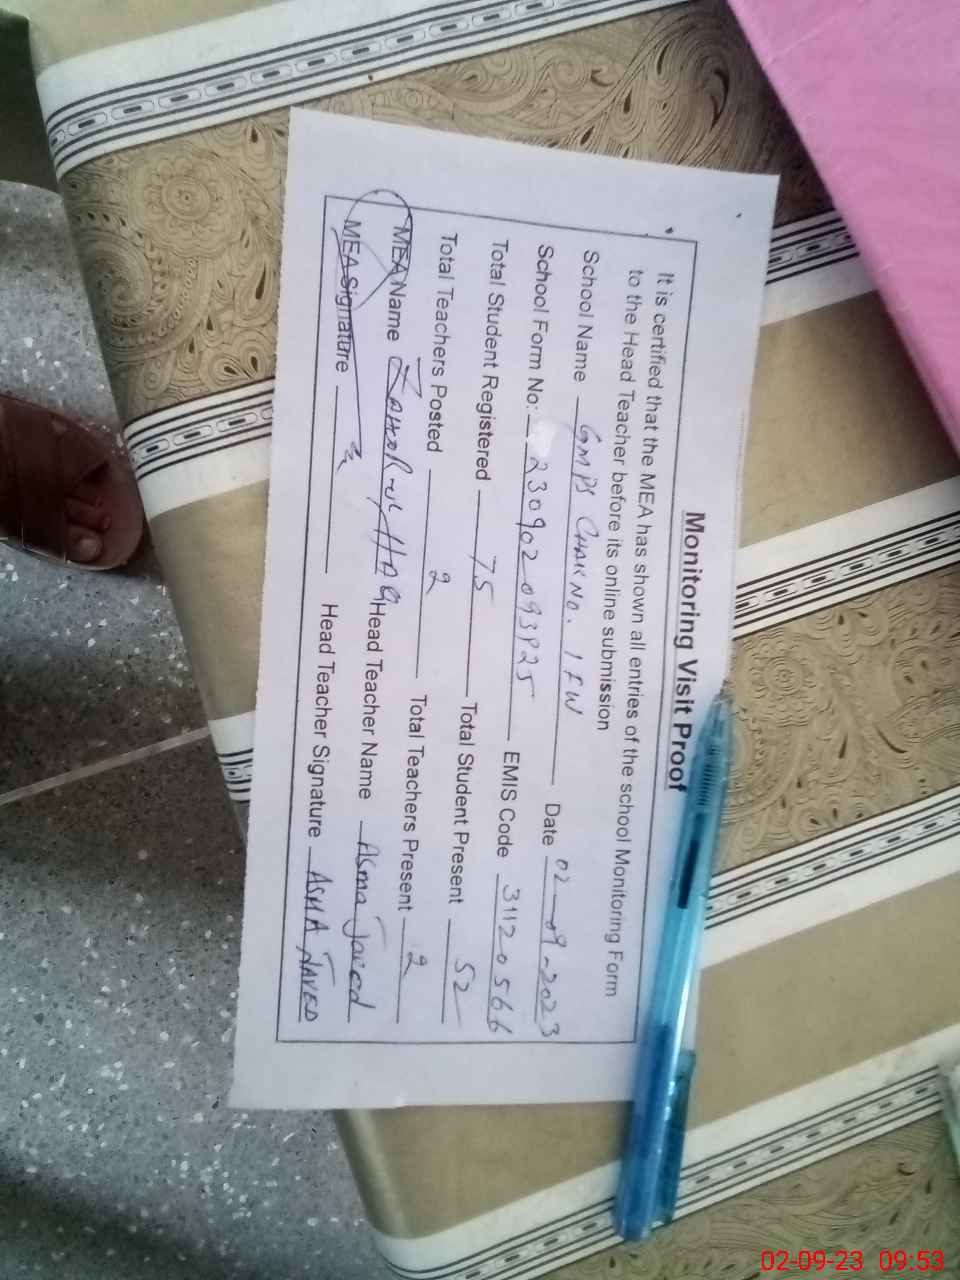 Monitoring Visit Proof
It is certified that the MEA has shown all entries of the school Monitoring Form
to the Head Teacher before its online submission
School Name GMPS Chak No. 1 FW Date 02-09-2023
School Form No: 230902093825 EMIS Code 31120566
Total Student Registered 75 Total Student Present 52
Total Teachers Posted 2 Total Teachers Present 2
MEA Name Zahoor-ul-HAQ Head Teacher Name Asma Javed
MEA Signature Head Teacher Signature ASMA JAVED
02-09-23 09:53